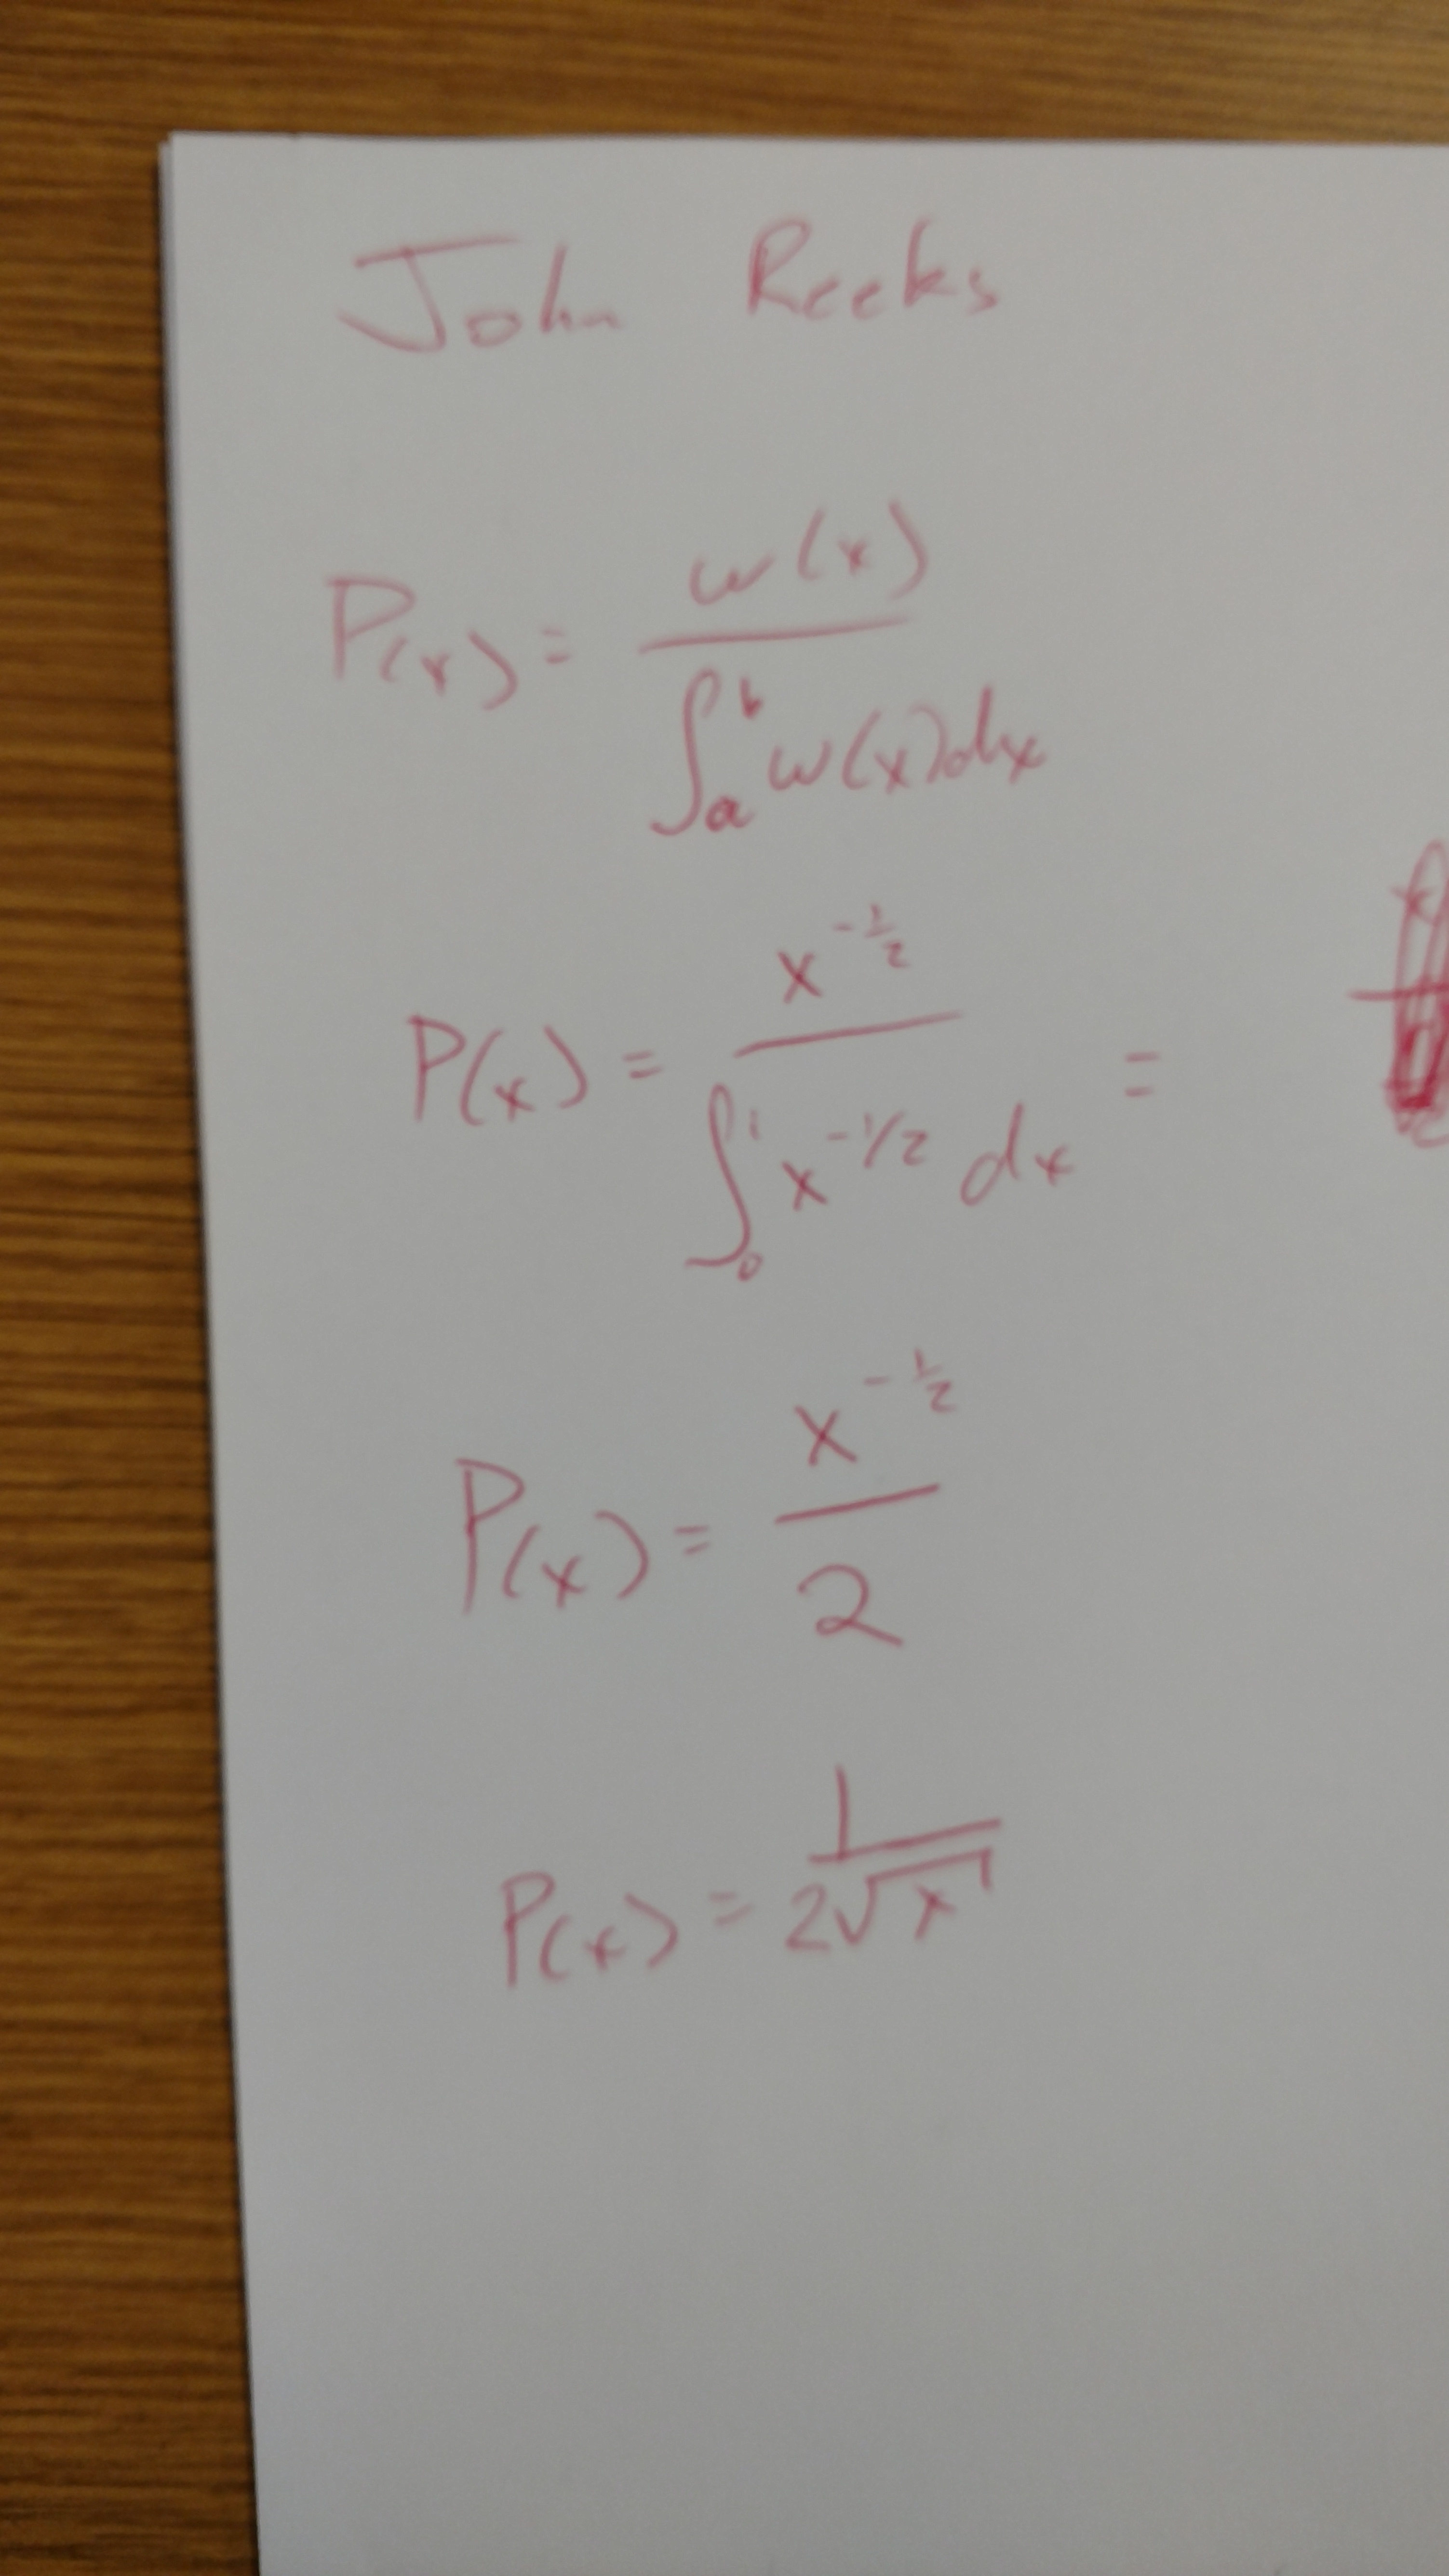 John Reeks
P(x) = w(x) / ∫_a^b w(x)dx
P(x) = x^{-1/2} / ∫_0^1 x^{-1/2} dx =
P(x) = x^{-1/2} / 2
P(x) = 1 / 2√x